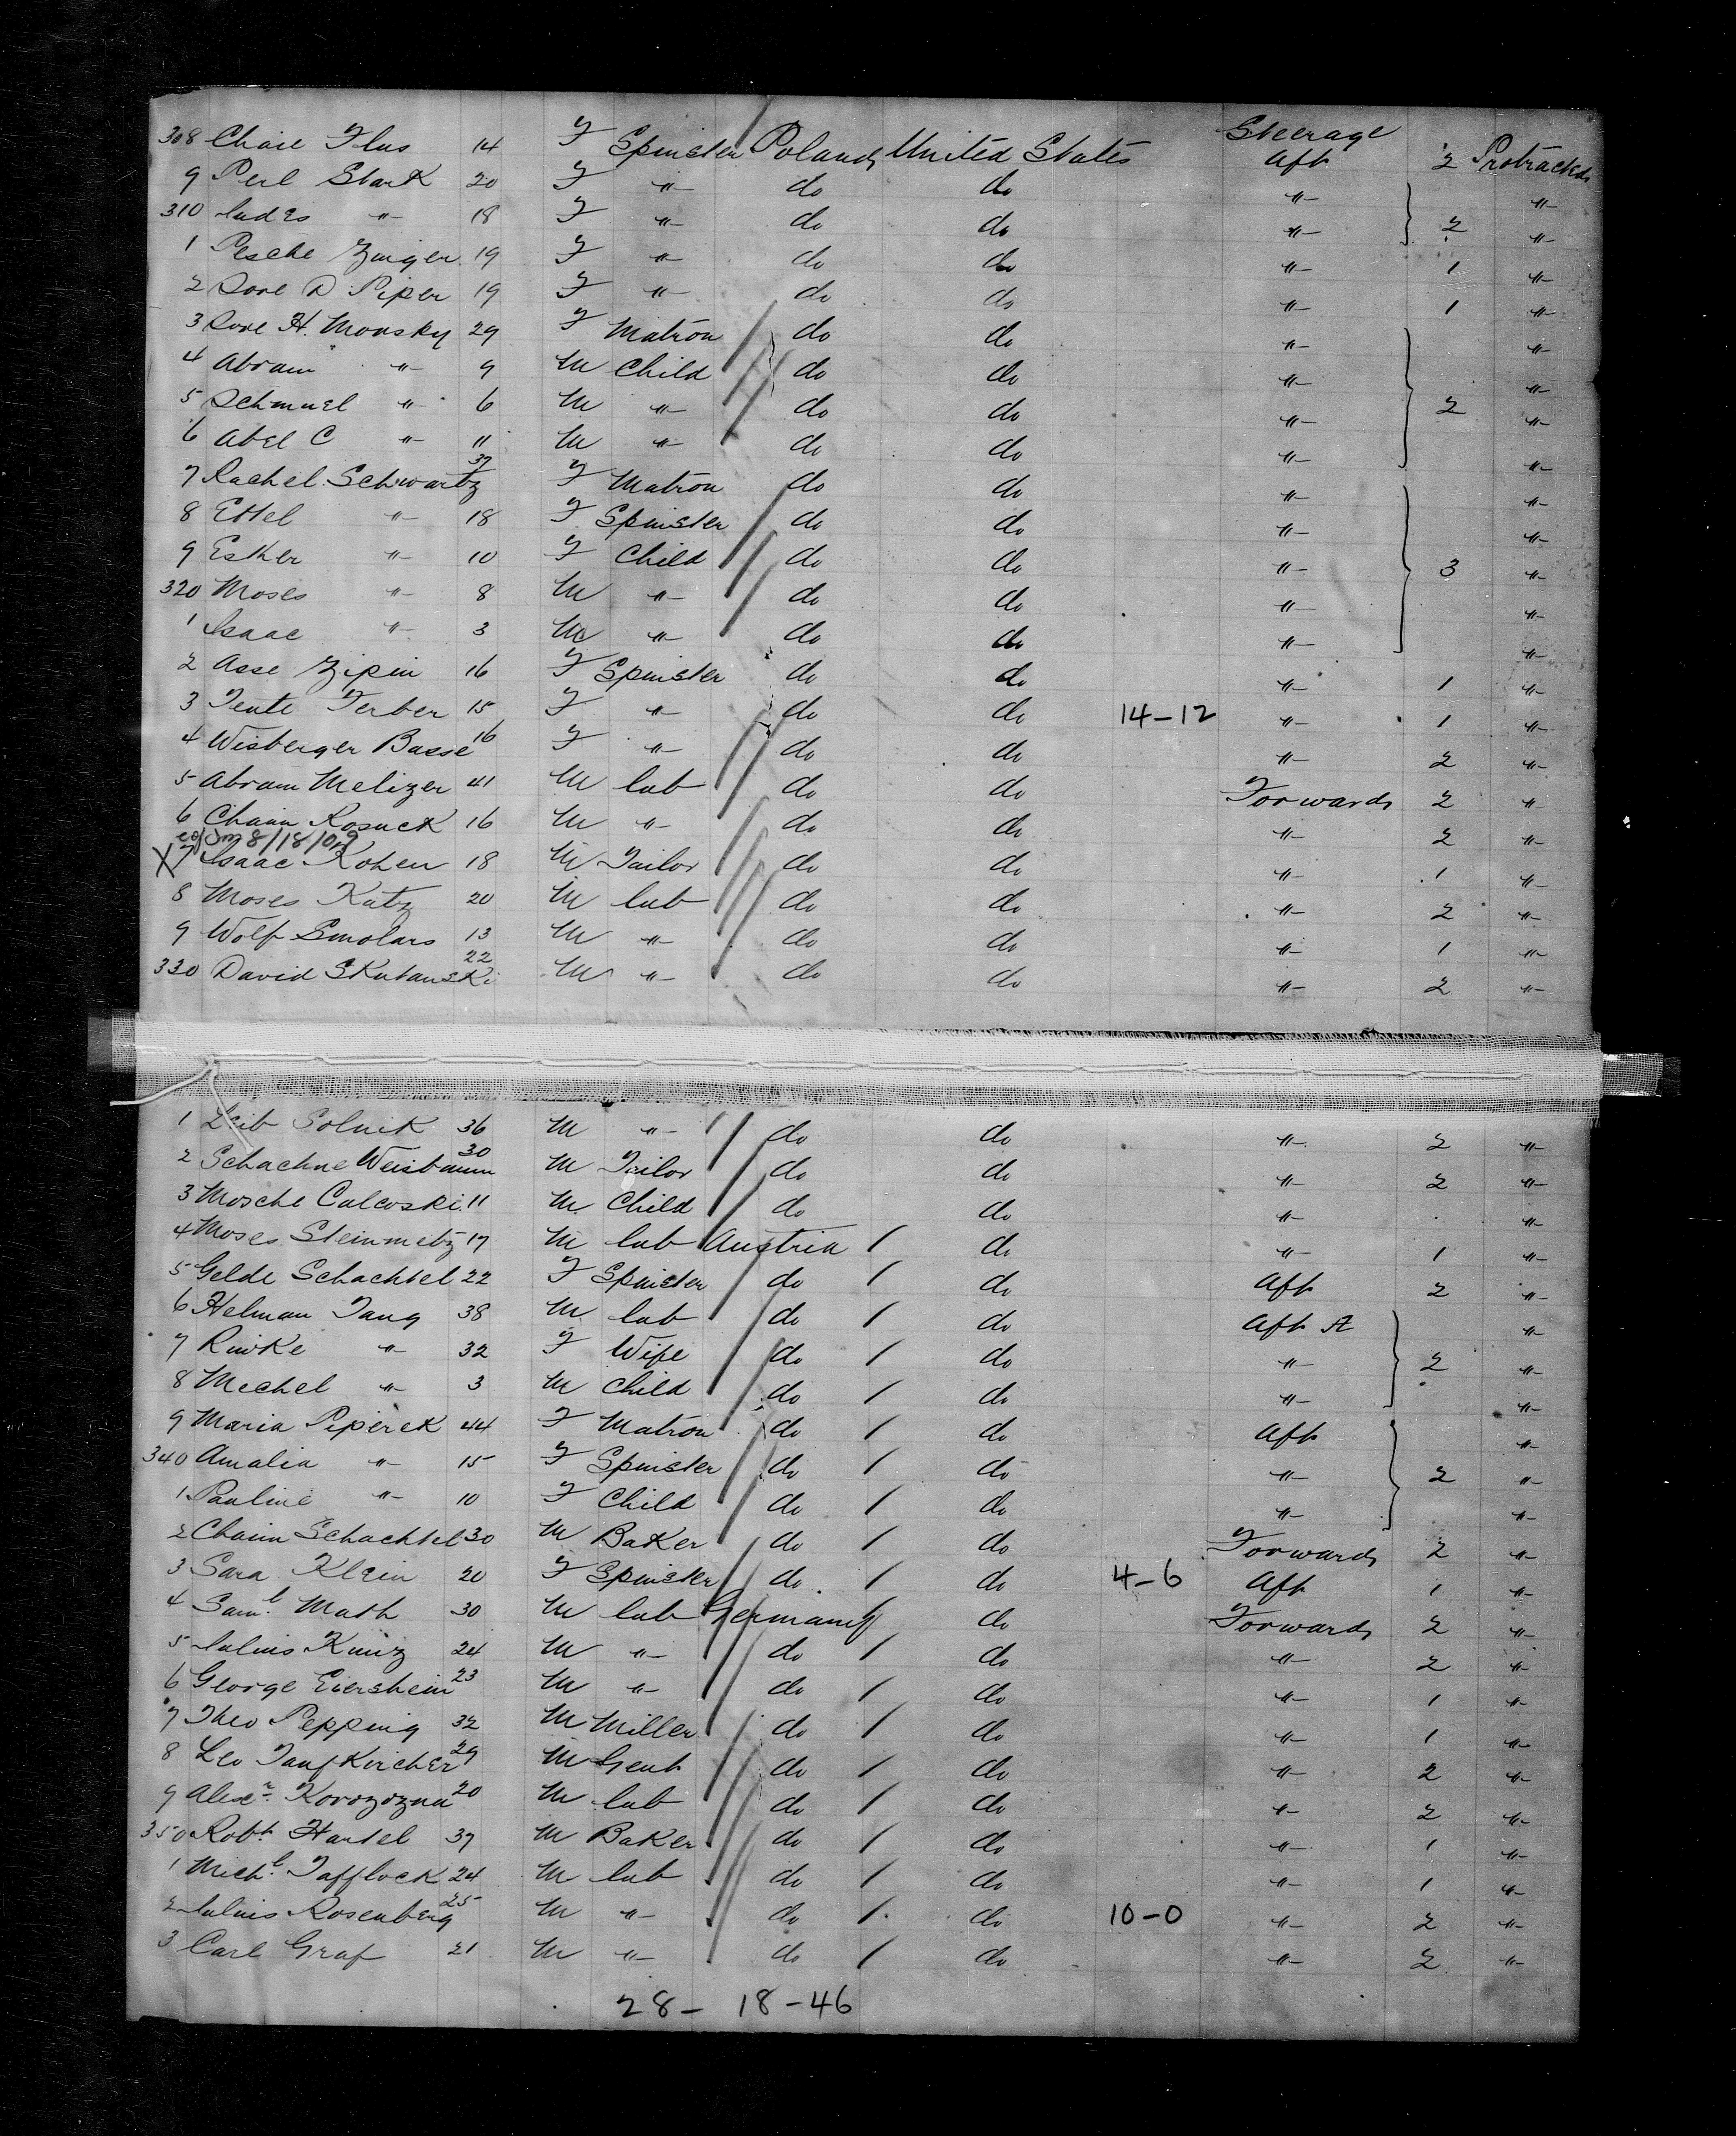 Steerage
308 Chaie Flus 14 F Spinster Poland United States Aft 2 Protracted
9 Perl Stark 20 F " do do " "
310 Judes " 18 F " do do " 2 "
1 Pesche Zinger 19 F " do do " 1 "
2 Sore D Piper 19 F " do do " 1 "
3 Sore H. Monsky 29 F Matron do do " "
4 Abram " 9 M Child do do " "
5 Schmuel " 6 M " do do " 2 "
6 Abel C " 11 M " do do " "
7 Rachel Schwartz 37 F Matron do do " "
8 Ettel " 18 F Spinster do do " "
9 Esther " 10 F Child do do " 3 "
320 Moses " 8 M " do do " "
1 Isaac " 3 M " do do " "
2 Asse Zipin 16 F Spinster do do " 1 "
3 Tente Ferber 15 F " do do 14-12 " 1 "
4 Wisberger Basse 16 F " do do " 2 "
5 Abram Melizer 41 M lab do do Forwards 2 "
6 Chaim Rosuck 16 M " do do " 2 "
8/18/09
X 7 Isaac Kohen 18 M Tailor do do " 1 "
8 Moses Katz 20 M lab do do " 2 "
9 Wolf Smolars 13 M " do do " 1 "
330 David Skutanski 22 M " do do " 2 "
1 Leib Solnik 36 M " do do " 2 "
2 Schachne Weisbaum 30 M Tailor do do " 2 "
3 Mosche Calcoski 11 M Child do do " "
4 Moses Steinmetz 17 M lab Austria / do " 1 "
5 Gelde Schachtel 22 F Spinster do / do Aft 2 "
6 Helman Tang 38 M lab do / do Aft A "
7 Riwke " 32 F Wife do / do " 2 "
8 Mechel " 3 M Child do / do " "
9 Maria Piperek 44 F Matron do / do Aft "
340 Amalia " 15 F Spinster do / do " 2 "
1 Pauline " 10 F Child do / do " "
2 Chaim Schachtel 30 M Baker do / do Forwards 2 "
3 Sara Klein 20 F Spinster do / do 4-6 Aft 1 "
4 Saml. Math 30 M lab Germany / do Forwards 2 "
5 Julius Kunz 24 M " do / do " 2 "
6 George Eversheim 23 M " do / do " 1 "
7 Theo Pepping 32 M Miller do / do " 1 "
8 Leo Taufkircher 29 M Gent do / do " 2 "
9 Alexr. 20 M lab do / do " 2 "
350 Robt. Hartel 37 M Baker do / do " 1 "
1 Michl. Tafflock 24 M lab do / do " 1 "
2 Julius Rosenberg 25 M " do / do 10-0 " 2 "
3 Carl Graf 21 M " do / do " 2 "
28- 18-46